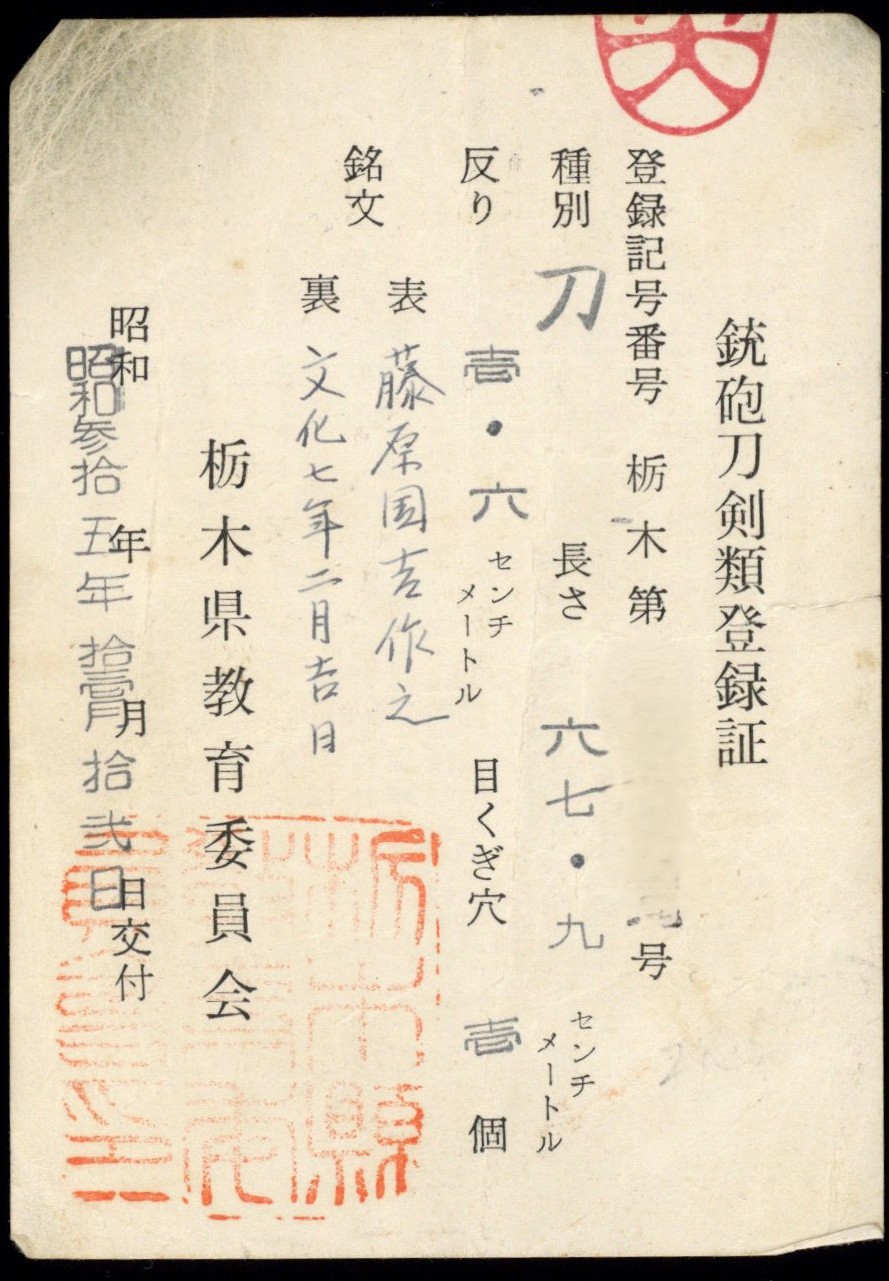 銃砲刀剣類登録証
登録記号番号 栃木第 号
種別 刀 長さ 六七・九 センチメートル
反り 壱・六 センチメートル 目くぎ穴 壱 個
銘文
表 藤原国吉作之
裏 文化七年二月吉日
栃木県教育委員会
昭和 年 月 日交付
昭和参拾五年拾壹月拾弐日